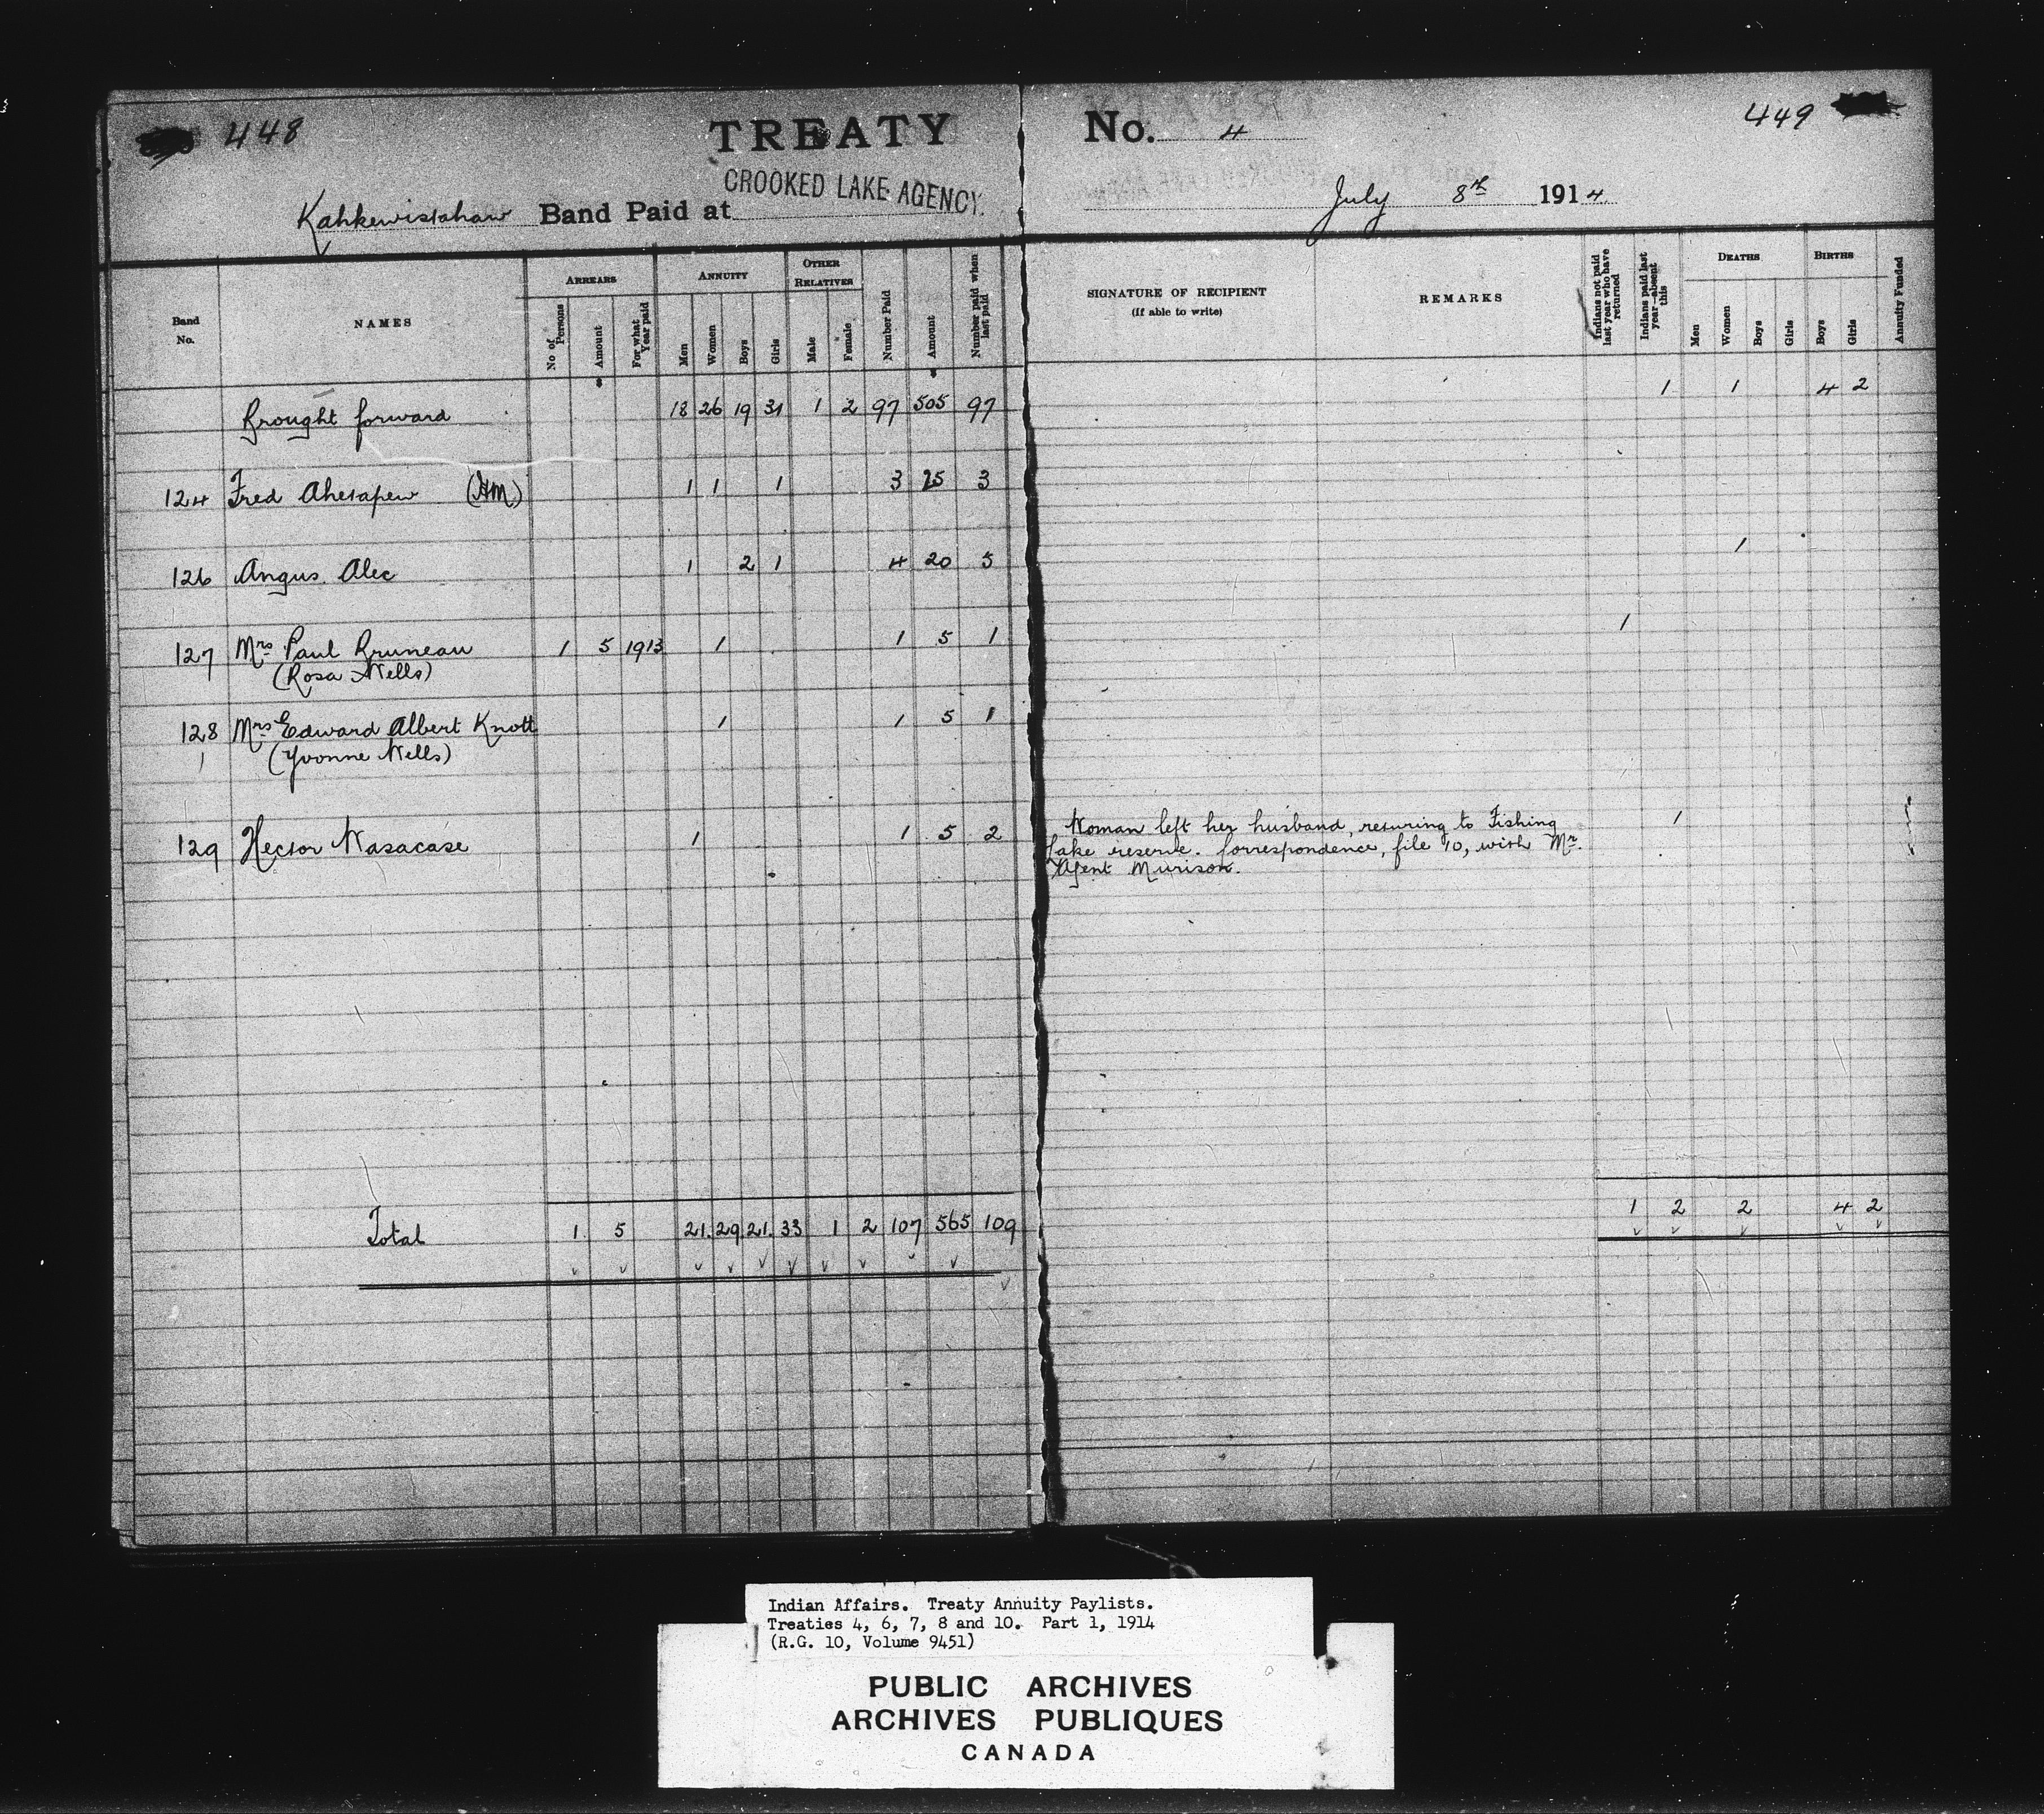 448
TREATY No. 4
449
CROOKED LAKE AGENCY.
Kahkewistahaw Band Paid at
July 8th 1914
Band No.
NAMES
ARREARS
No of Persons
Amount
For what Year paid
ANNUITY
Men
Women
Boys
Girls
OTHER RELATIVES
Male
Female
Number Paid
Amount
Number paid when last paid
SIGNATURE OF RECIPIENT
(If able to write)
REMARKS
Indians not paid last year who have returned
Indians paid last year—absent this
DEATHS
Men
Women
Boys
Girls
BIRTHS
Boys
Girls
Annuity Funded
Brought forward 18 26 19 31 1 2 97 505 97 1 1 4 2
124 Fred Ahetapew (HM) 1 1 1 3 25 3
126 Angus Alec 1 2 1 4 20 5 1
127 Mrs Paul Bruneau 1 5 1913 1 1 5 1 1
(Rosa Wells)
128 Mrs Edward Albert Knott 1 1 5 1
(Yvonne Wells)
129 Hector Wasacase 1 1 5 2 1
Woman left her husband, returing to Fishing
Lake reserve. Correspondence, file 10, with Mr.
Agent Murison.
Total 1 5 21 29 21 33 1 2 107 565 109 1 2 2 4 2
Indian Affairs. Treaty Annuity Paylists.
Treaties 4, 6, 7, 8 and 10. Part 1, 1914
(R.G. 10, Volume 9451)
PUBLIC ARCHIVES
ARCHIVES PUBLIQUES
CANADA